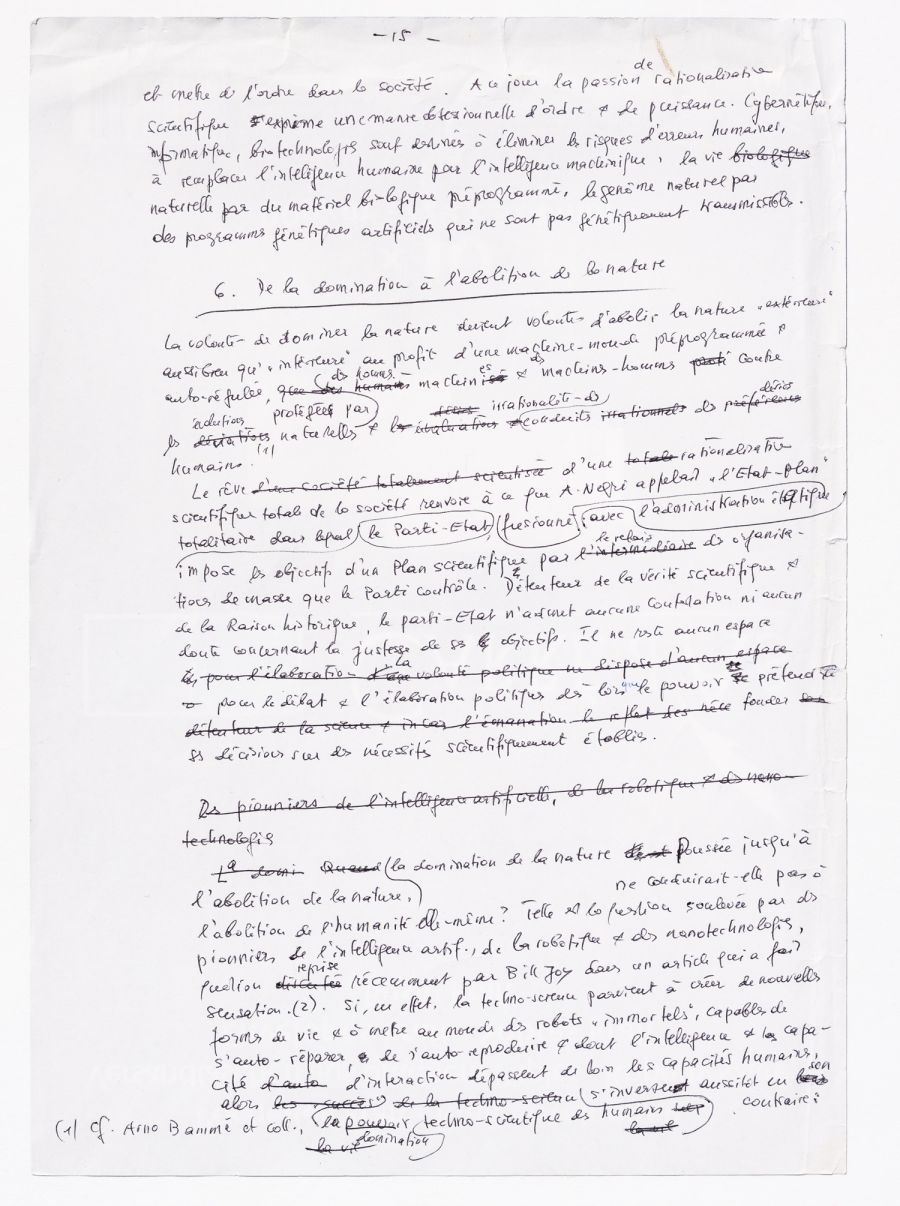 - 15 -
de
et mettre de l'ordre dans la société. A ce jour la passion rationalisatrice
scientifique exprime une manie obsessionnelle d'ordre & de puissance. Cybernétique,
informatique, biotechnologies sont destinées à éliminer les risques d'erreurs humaines,
à remplacer l'intelligence humaine par l'intelligence machinique, la vie biologique
naturelle par du matériel biologique préprogrammé, le génome naturel par
des programmes génétiques artificiels qui ne sont pas génétiquement transmissibles.
6. De la domination à l'abolition de la nature
La volonté de dominer la nature devient volonté d'abolir la nature "extérieure"
aussi bien qu'"intérieure" au profit d'une machine-monde préprogrammée &
autorégulée, que des humains machinisés & des machines-hommes contre
des hommes
protégées par
les déviations naturelles & les évaluations conduites irrationnels des préférences
irrationalité des désirs
humains. (1)
Le rêve d'une société totalement scientisée d'une totale rationalisation
scientifique totale de la société renvoie à ce que A. Negri appelait "l'Etat-Plan"
totalitaire dans lequel le Parti-Etat, fusionné avec l'administration étatique
le relais
impose les objectifs d'un Plan scientifique par l'intermédiaire des organisa-
tions de masse que le Parti contrôle. Détenteur de la vérité scientifique &
de la Raison historique, le parti-Etat n'admet aucune contestation ni aucun
doute concernant la justesse de ses objectifs. Il ne reste aucun espace
pour l'élaboration d'une la volonté politique ne dispose d'aucun espace
pour le débat & l'élaboration politiques dès lors que le pouvoir prétend
détenteur de la science & incar l'émanation le reflet des néce fonder
ses décisions sur des nécessités scientifiquement établies.
Des pionniers de l'intelligence artificielle, de la robotique & des nano-
technologies
La domi Quand la domination de la nature poussée jusqu'à
l'abolition de la nature, ne conduirait-elle pas à
l'abolition de l'humanité elle-même? Telle est la question soulevée par des
pionniers de l'intelligence artif., de la robotique & des nanotechnologies,
reprise
question discutée récemment par Bill Joy dans un article qui a fait
sensation. (2). Si, en effet, la techno-science parvient à créer de nouvelles
formes de vie & à mettre au monde des robots "immortels", capables de
s'auto-réparer, de s'auto reproduire & dont l'intelligence & les capa-
cité d'auto d'interaction dépassent de loin les capacités humaines,
alors les succès de la techno-science s'inversent aussitôt en son
contraire:
(1) Cf. Arno Bammé et coll., le pouvoir techno-scientifique des humains
la vie domination